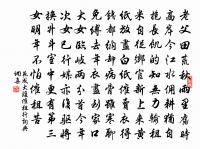 老父田荒秋雨里舊時
高岸今江水傭耕猶自
抱長飢的知無力輸租
米自從鄉官新上來黃
紙放盡白紙催賣衣得
錢都納却病骨雖寒聊
免縛去年衣盡到家口
大女臨岐兩分首今年
次女已行媒亦復驅將
換升斗室中更有第三
女明年不怕催租苦
范成大後催租行